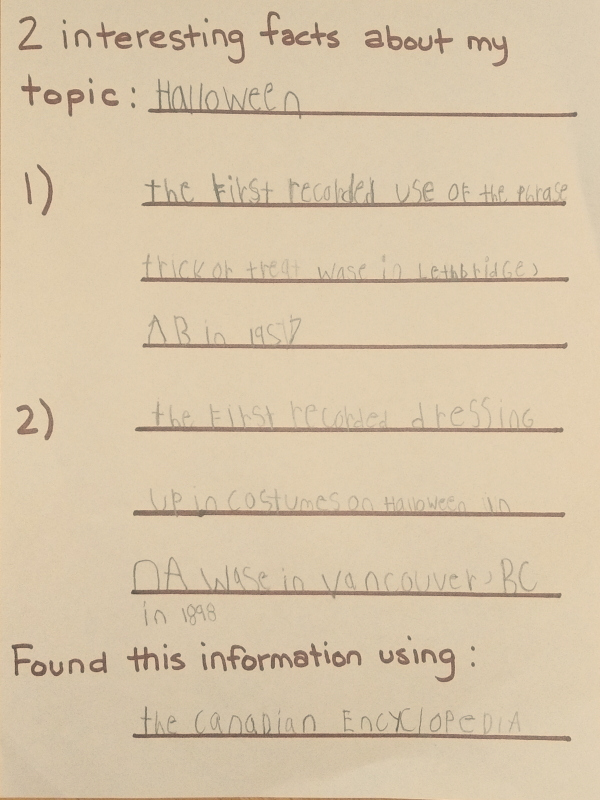 2 interesting facts about my
topic: Halloween
1) the First recorded use of the phrase
trick or treat wase in Lethbridge,
AB in
2) the First recorded dressing
up in costumes on Halloween in
NA wase in vancouver, BC
in 1898
Found this information using:
the Canadian EncyclopediA